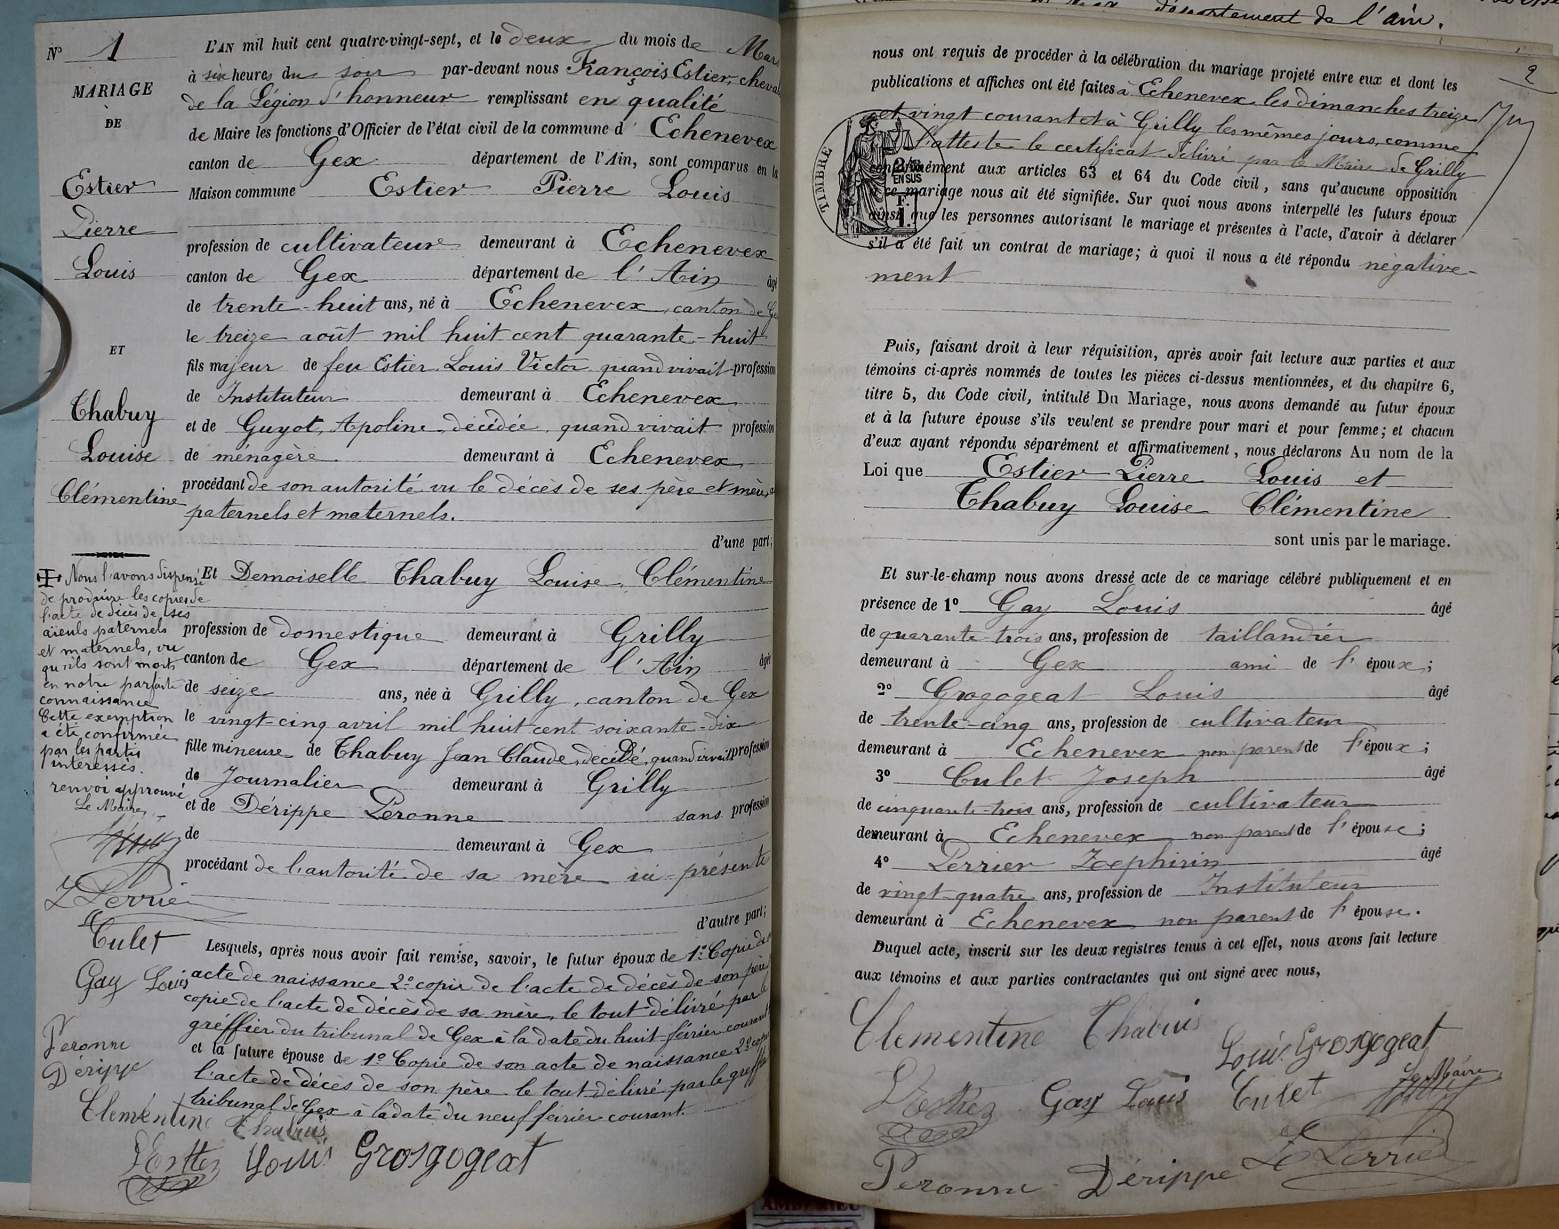 N° 1
MARIAGE
DE
Estier
Pierre
Louis
ET
Thabuy
Louise
Clémentine
L'AN mil huit cent quatre-vingt-sept, et le deux du mois de Mars
à six heures du soir par-devant nous François Estier, cheval
de la Légion d'honneur remplissant en qualité
de Maire les fonctions d'Officier de l'état civil de la commune d' Echenevex
canton de Gex département de l'Ain, sont comparus en la
Maison commune Estier Pierre Louis
profession de cultivateur demeurant à Echenevex
canton de Gex département de l'Ain âgé
de trente-huit ans, né à Echenevex, canton de Ge
le treize août mil huit cent quarante-huit
fils majeur de feu Estier Louis Victor quand vivait profession
de Instituteur demeurant à Echenevex
et de Guyot, Apoline, décédée quand vivait profession
de ménagère demeurant à Echenevex
procédant de son autorité vu le décès de ses père et mère,
paternels et maternels.
d'une part;
Et Demoiselle Thabuy Louise, Clémentine
profession de domestique demeurant à Grilly
canton de Gex département de l'Ain âgé
de seize ans, née à Grilly, canton de Gex
le vingt-cinq avril mil huit cent soixante-dix
fille mineure de Thabuy Jean Claude, décédé, quand vivait profession
de Journalier demeurant à Grilly
et de Dérippe Péronne sans profession
de demeurant à Gex
procédant de l'autorité de sa mère ici présente
d'autre part;
Lesquels, après nous avoir fait remise, savoir, le futur époux de 1° Copie de
acte de naissance 2° copie de l'acte de décès de son père
copie de l'acte de décès de sa mère, le tout délivré par le
gréffier du tribunal de Gex à la date du huit février courant
et la future épouse de 1° Copie de son acte de naissance 2° copie
l'acte de décès de son père le tout délivré par le greffier
tribunal de Gex à la date du neuf février courant.
Nous l'avons dispensé
de produire les copies de
l'acte de décès de ses
aïeuls paternels
et maternels, vu
qu'ils sont morts
en notre parfaite
connaissance
Cette exemption
a été confirmée
par les partis
interessés.
renvoi approuvé
Le Maire,
Z Perrier
Culet
Gay Louis
Peronne
Dérippe
Clementine Thabuis
Louis Grosgogeat
département de l'ain.
2
nous ont requis de procéder à la célébration du mariage projeté entre eux et dont les
publications et affiches ont été faites à Echenevex les dimanches treize
et vingt courant et à Grilly les mêmes jours, comme
l'atteste le certificat délivré par le Maire de Grilly
conformément aux articles 63 et 64 du Code civil, sans qu'aucune opposition
à ce mariage nous ait été signifiée. Sur quoi nous avons interpellé les futurs époux
ainsi que les personnes autorisant le mariage et présentes à l'acte, d'avoir à déclarer
s'il a été fait un contrat de mariage; à quoi il nous a été répondu négative-
ment
TIMBRE
EN SUS
Puis, faisant droit à leur réquisition, après avoir fait lecture aux parties et aux
témoins ci-après nommés de toutes les pièces ci-dessus mentionnées, et du chapitre 6,
titre 5, du Code civil, intitulé Du Mariage, nous avons demandé au futur époux
et à la future épouse s'ils veulent se prendre pour mari et pour femme; et chacun
d'eux ayant répondu séparément et affirmativement, nous déclarons Au nom de la
Loi que Estier Pierre Louis et
Thabuy Louise Clémentine
sont unis par le mariage.
Et sur-le-champ nous avons dressé acte de ce mariage célébré publiquement et en
présence de 1° Gay Louis âgé
de quarante-trois ans, profession de taillandier
demeurant à Gex ami de l'époux;
2° Grogogeat Louis âgé
de trente-cinq ans, profession de cultivateur
demeurant à Echenevex non parent de l'époux;
3° Culet Joseph âgé
de cinquante-trois ans, profession de cultivateur
demeurant à Echenevex non parent de l'épouse;
4° Perrier Zéphirin âgé
de vingt-quatre ans, profession de Instituteur
demeurant à Echenevex non parent de l'épouse.
Duquel acte, inscrit sur les deux registres tenus à cet effet, nous avons fait lecture
aux témoins et aux parties contractantes qui ont signé avec nous,
Clementine Thabuis
Louis Grosgogeat
Gay Louis Culet Le Maire
Peronne Dérippe Z Perrier